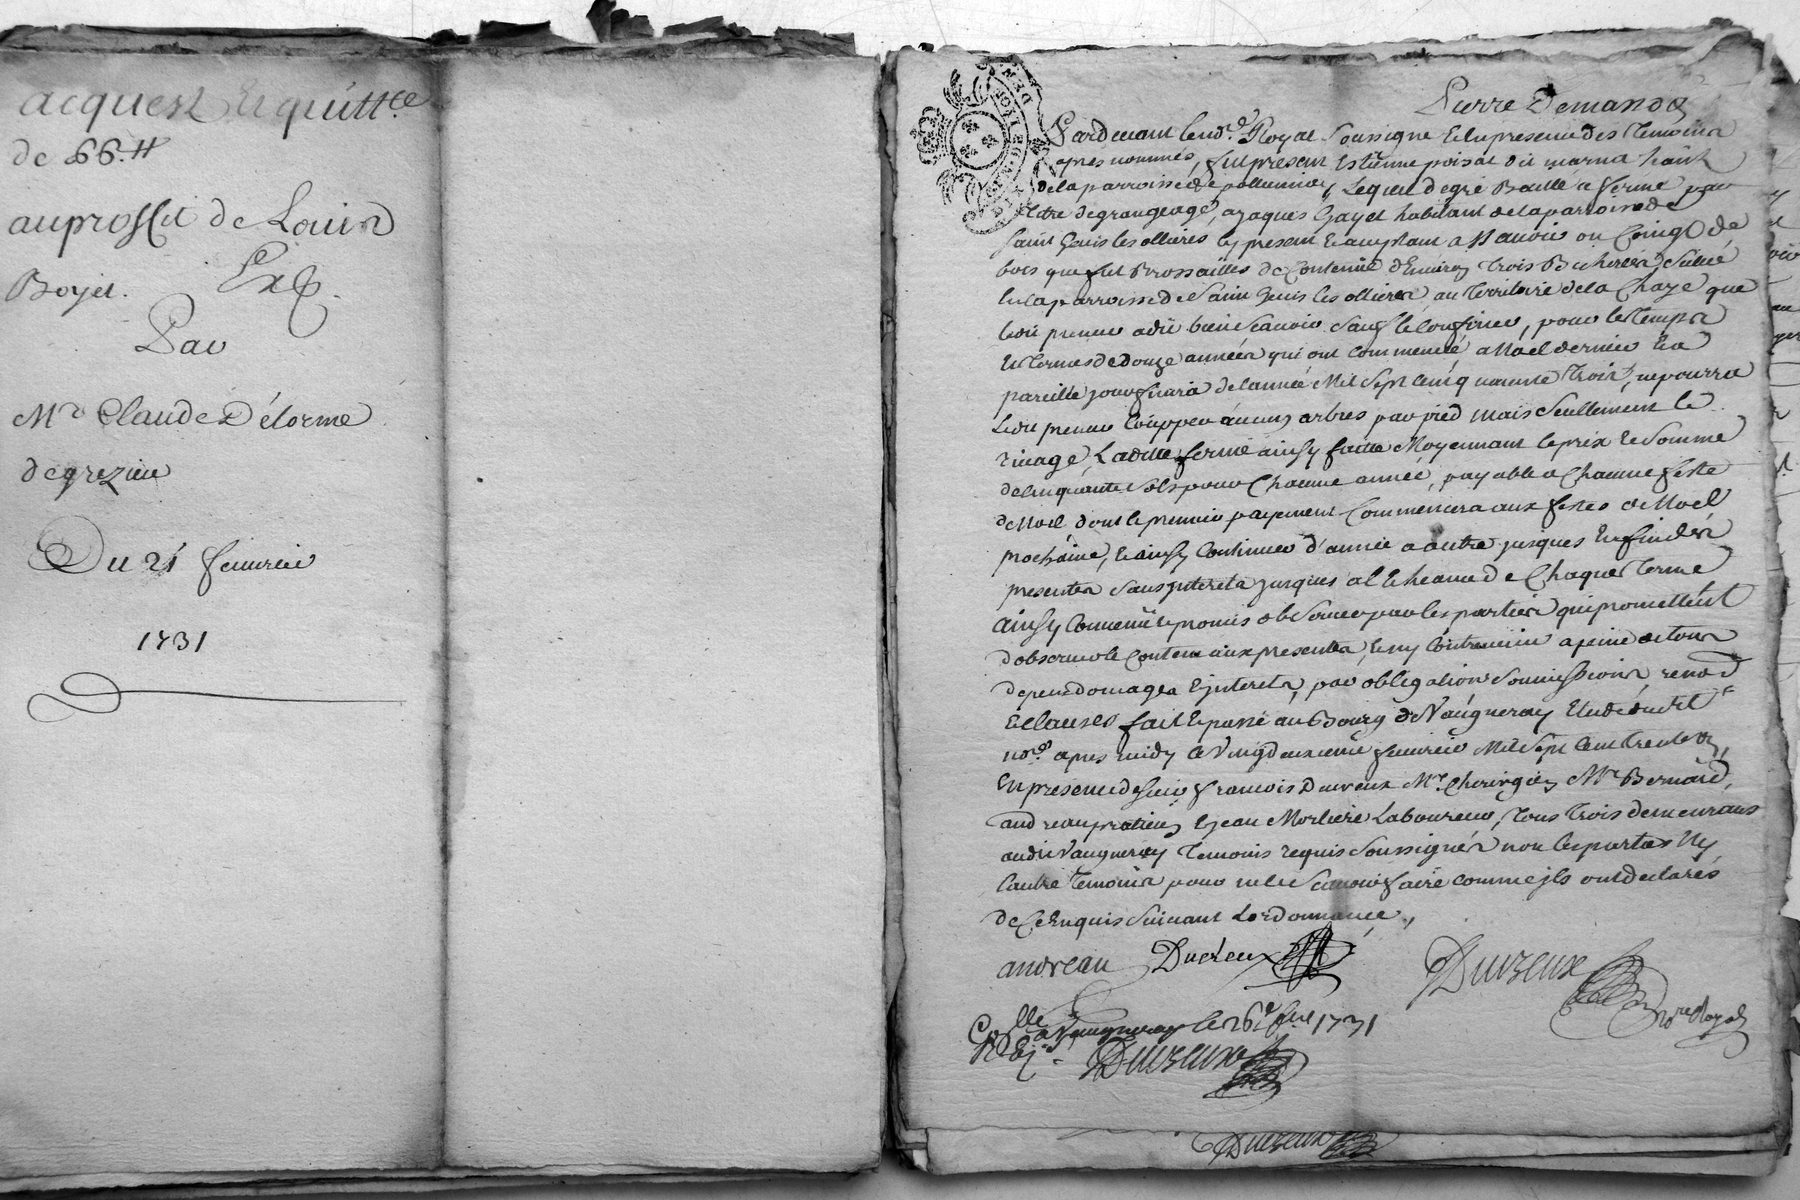 acquest Et quittce
de 66.tt
au proffit de Louis
Boyet. Exp.
Par
Mr Claude Délorme
de grezieu
Du 21 feuvrier
1731
Pierre Demando
Pardeuant le nore Royal Soussigne Et En presence des Temoins
apres nommés, fut present Estienne poisat dit marna hant
de la parroisse de pollionnay, Lequel de gré Baille a ferme par
titre de grangeage, a jaques Gayet habitant de la parroisse de
Saint Genis les ollieres cy present Et acceptant a Scauoir un Coing de
bois que fut Brossailles de Contenüe d'Enuiron trois Bicherées, Scitué
En la parroisse de Saint Genis les ollieres au Territoire de la Chaze que
Ledit preneur a dit bien Scauoir Sauf le Confiner, pour le Temps
Et Termes de Douze années qui ont Commencé a Noel dernier Et a
pareille jour finira de l'année Mil Sept Cents quarante Trois, ne pourra
Ledit preneur Coupper aucuns arbres par pied Mais Seullement le
Ladite ferme ainsy faitte Moyennant le prix Et Somme
de Cinquante Sols pour Chacune année, payable a Chacune feste
de Noel dont le premier payement Commencera aux festes de Noel
prochaine, Et ainsy Continuer d'année a autre jusques En fin des
presentes Sans jnterets jusques a l'Echeance de Chaque Terme
ainsy Conuenu Et promis obseruer par les parties qui promettent
d'obseruer le Contenu aux presentes, Et ny Contreuenir a peine de tous
depens domages Et jnterets, par obligations Soumissions, renond
Et clauses fait Et passé au Bourg de Vaugneray Etude dudit
nore apres midy Le Vingt deuxieme feuvrier Mil Sept Cent Trente Un,
En presence de Sieur francois Ducreux Mre Chirurgien Mre Bernard
andreau praticien Et jean Morliere Laboureur, tous Trois demeurans
audit Vaugneray Temoins requis Soussignés non les parties Ny
L'autre Temoins pour ne le Scauoir faire comme jls ont declarés
de Ce Enquis Suiuant Lordonnance.,
andreau Ducreux Ducreux
nore Royal
Collé a Vaugneray le 26e feur 1731
Ducreux
Ducreux